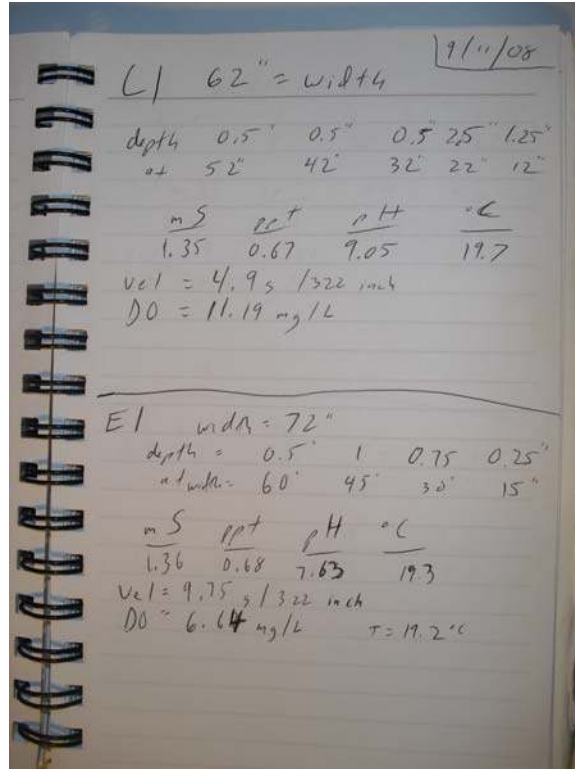 9/11/08
C1 62" = width
depth 0.5" 0.5" 0.5" 2.5" 1.25"
at 52" 42" 32" 22" 12"
mS ppt pH °C
1.35 0.67 9.05 19.7
vel = 4.9 s /322 inch
DO = 11.19 mg/L
E1 width = 72"
depth = 0.5" 1 0.75 0.25"
at width = 60" 45" 30" 15"
mS ppt pH °C
1.36 0.68 7.63 19.3
vel = 9.75 s/322 inch
DO = 6.64 mg/L T = 19.2°C